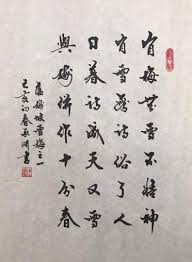 有梅無雪不精神
有雪無詩俗了人
日暮詩成天又雪
與梅併作十分春
盧梅坡雪梅之一
己亥初春書